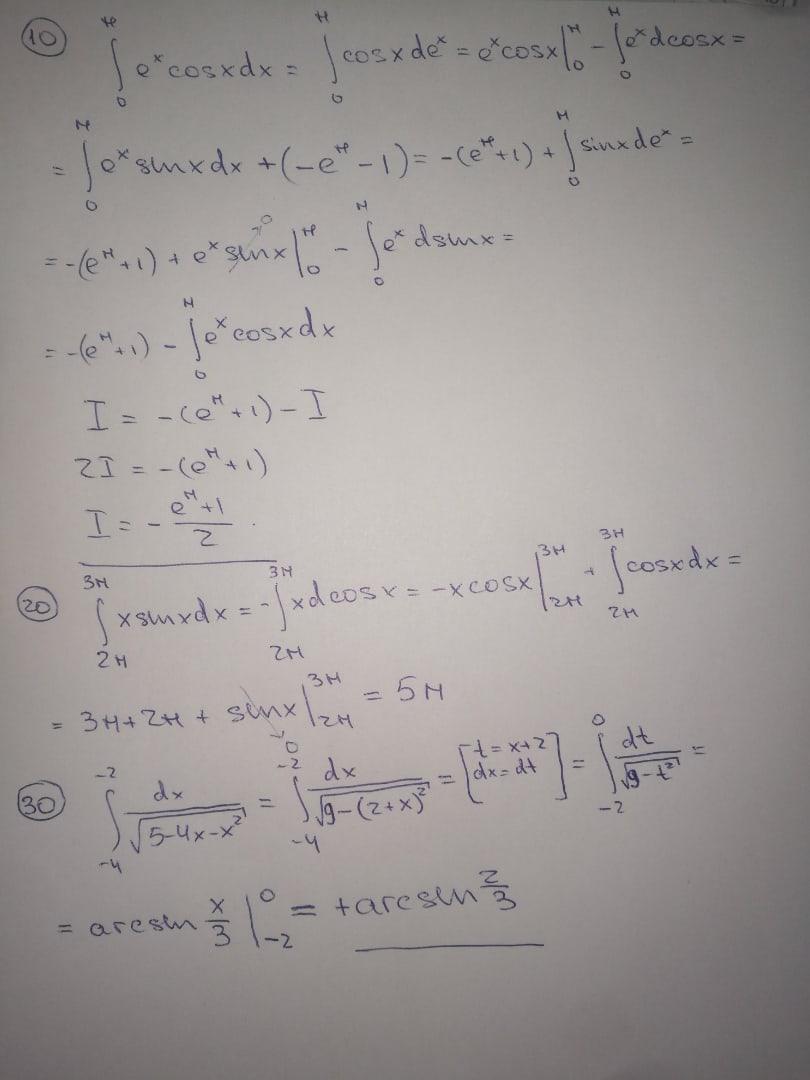 10 ∫₀^π eˣcosxdx = ∫₀^π cosxdeˣ = eˣcosx|₀^π - ∫₀^π eˣdcosx =
= ∫₀^π eˣsinxdx + (-e^π - 1) = -(e^π+1) + ∫₀^π sinxdeˣ =
= -(e^π+1) + eˣsinx|₀^π →0 - ∫₀^π eˣdsinx =
= -(e^π+1) - ∫₀^π eˣcosxdx
I = -(e^π+1) - I
2I = -(e^π+1)
I = - (e^π+1)/2.
20 ∫_{2π}^{3π} xsinxdx = -∫_{2π}^{3π} xdcosx = -xcosx|_{2π}^{3π} + ∫_{2π}^{3π} cosxdx =
= 3π+2π + sinx|_{2π}^{3π} →0 = 5π
30 ∫_{-4}^{-2} dx/√(5-4x-x²) = ∫_{-4}^{-2} dx/√(9-(2+x)²) = [t=x+2 dx=dt] = ∫_{-2}^{0} dt/√(9-t²) =
= arcsin x/3 |_{-2}^{0} = +arcsin 2/3